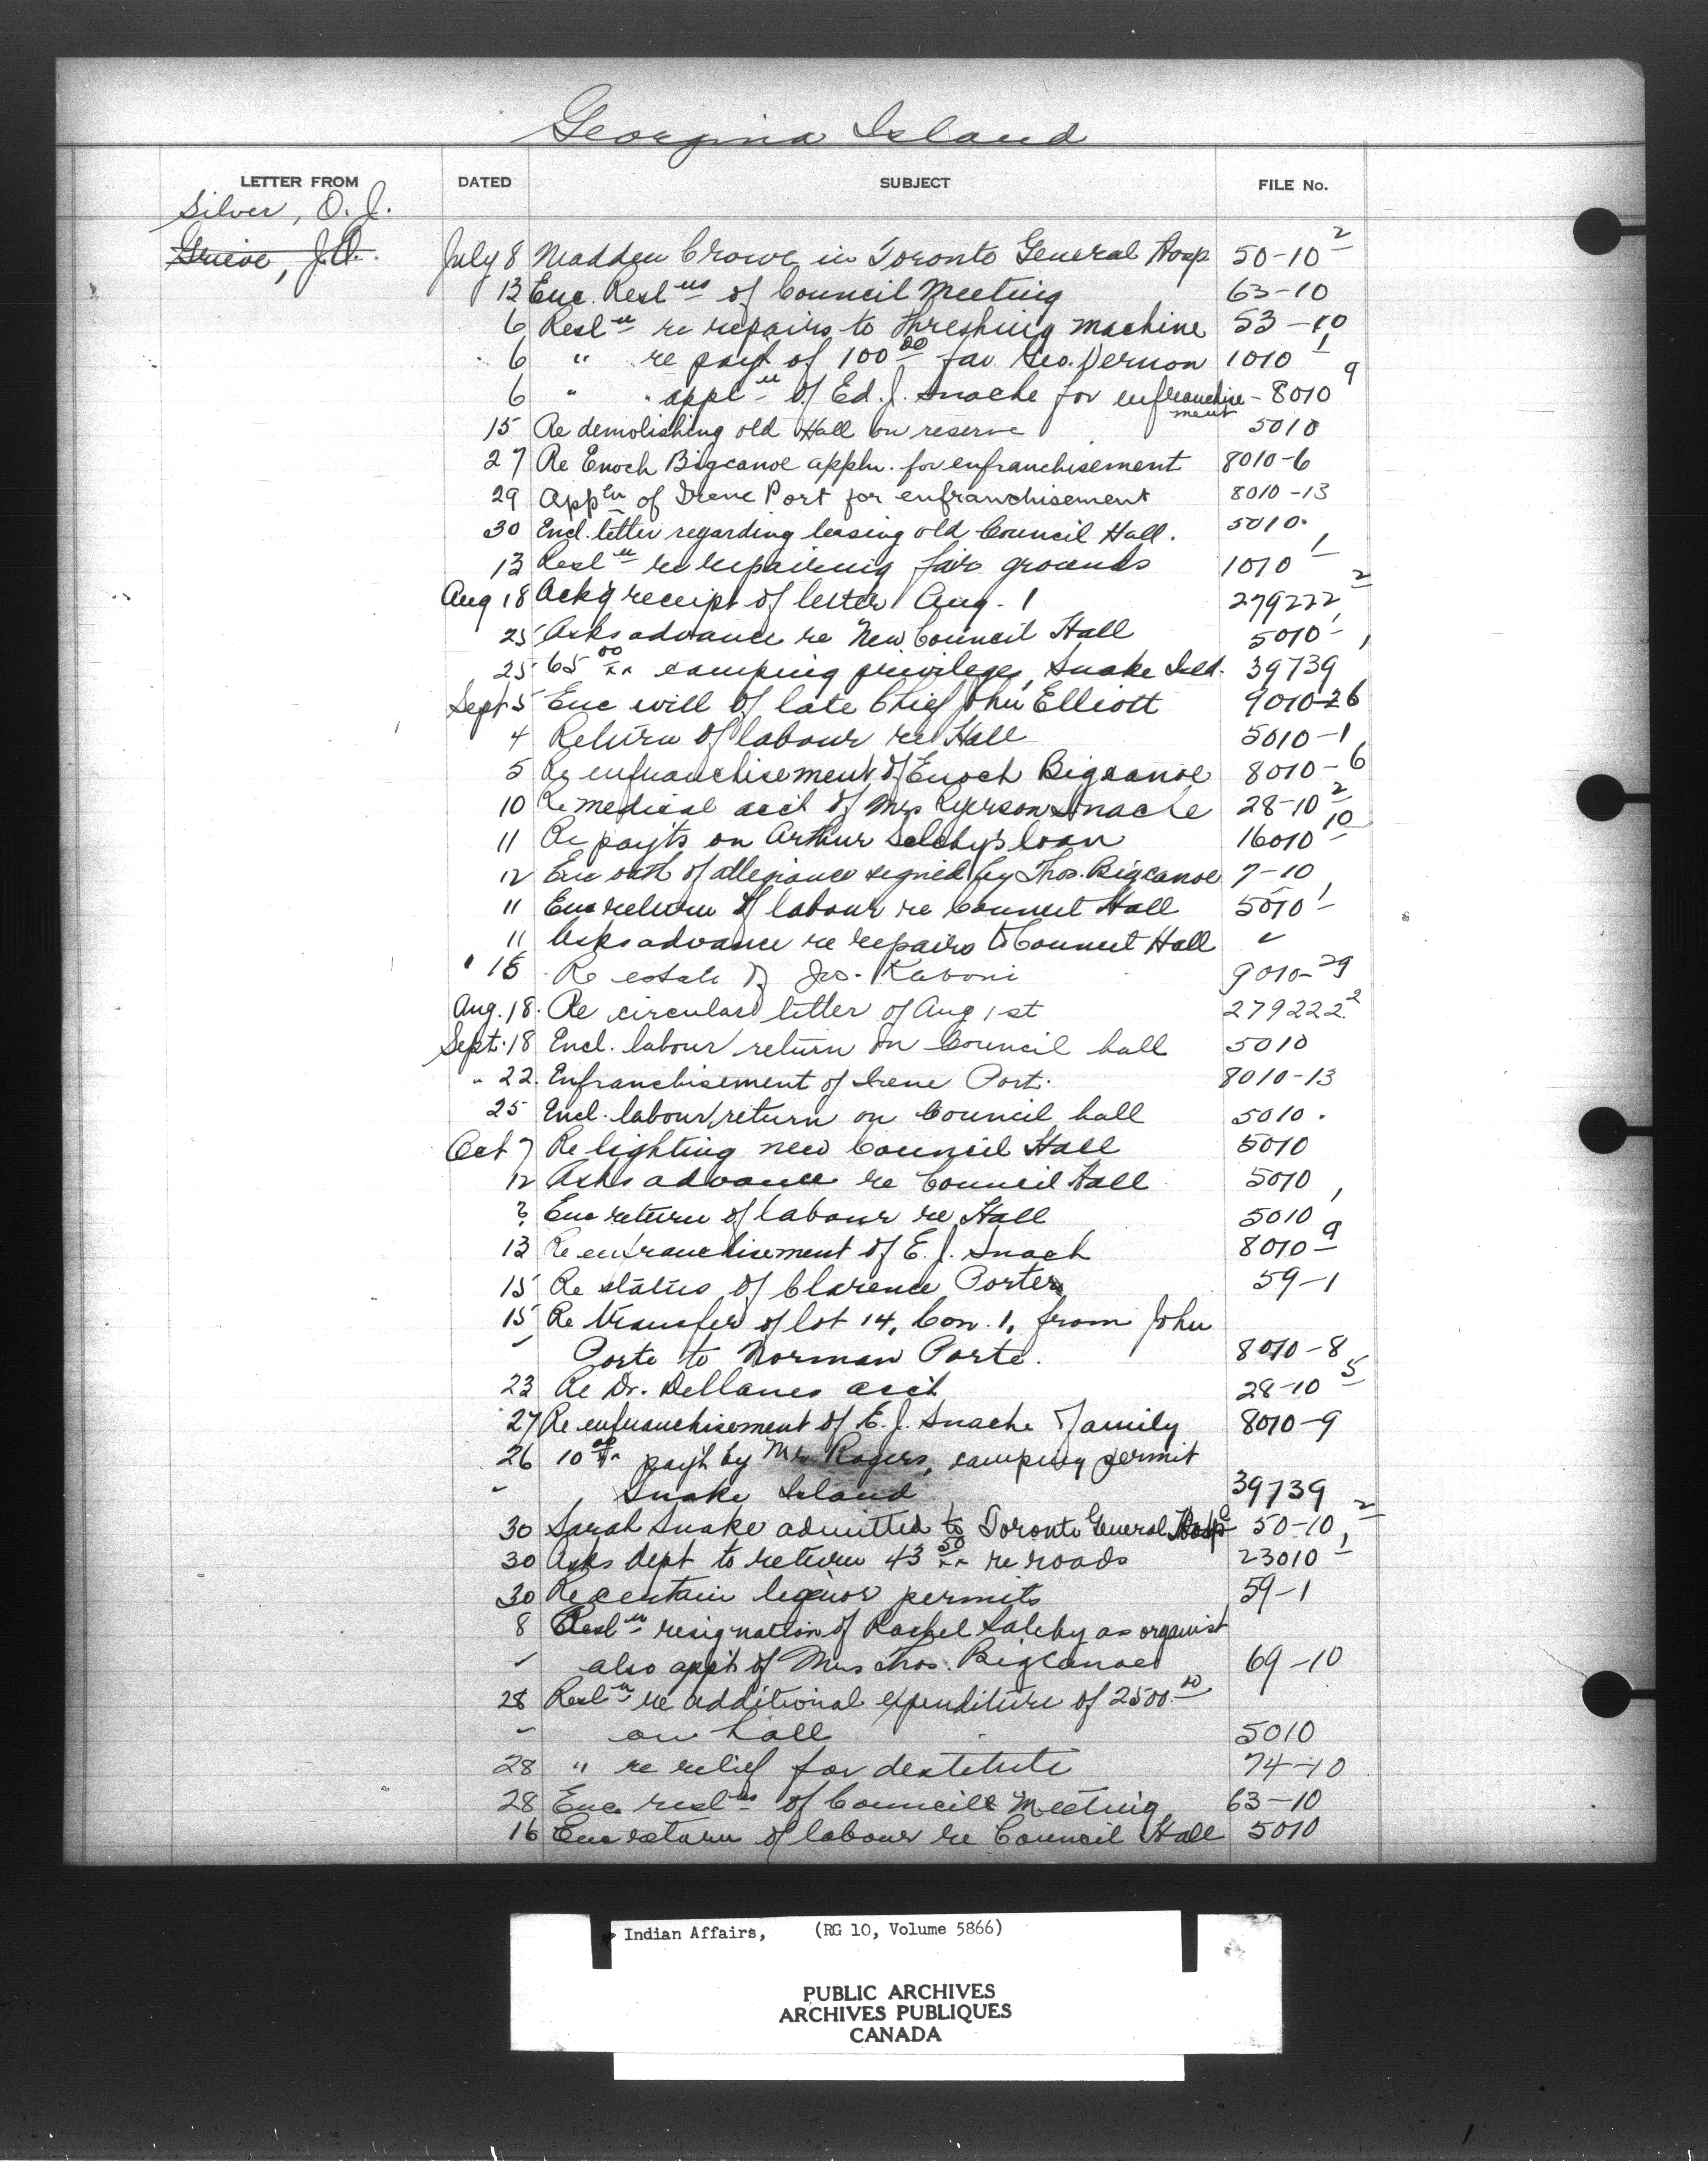 Georgina Island
LETTER FROM DATED SUBJECT FILE No.
Silver, O. J.
Grieve, J.A. July 8 Madden Crowe in Toronto General Hosp 50-10 2
13 Enc. Resl ns of Council Meeting 63-10
6 Resl n re repairs to threshing machine 53-10
6 " re payt of 100 00 fav. Geo. Vernon 1010 1
6 " " appl n of Ed. J. Snache for enfranchisement - 8010 9
15 Re demolishing old Hall on reserve 5010
27 Re Enoch Bigcanoe appln. for enfranchisement 8010-6
29 App ln of Irene Port for enfranchisement 8010-13
30 Encl. letter regarding leasing old Council Hall. 5010.
13 Resl n re repairing fair grounds 1010 1
Aug 18 Ack'g receipt of letter Aug. 1 279222 2
25 Asks advance re New Council Hall 5010-1
25 65 00 xx camping privileges, Snake Isld. 39739 1
Sept 5 Enc will of late Chief John Elliott 9010-26
4 Return of labour re Hall 5010-1
5 Re enfranchisement of Enoch Bigcanoe 8010-6
10 Re medical acct of Mrs Ryerson Snache 28-10 2
11 Re payts on Arthur Salsby's loan 16010 10
12 Enc oath of allegiance signed by Thos. Bigcanoe 7-10
11 Enc return of labour re Council Hall 5010 1
11 Asks advance re repairs to Council Hall "
" 18 Re estate of Jas. Kaboni 9010-29
Aug. 18. Re circular letter of Aug 1st 279222.2
Sept. 18 Encl. labour return on Council hall 5010
" 22. Enfranchisement of Irene Port. 8010-13
25 Encl. labour return on Council hall 5010.
Oct 7 Re lighting new Council Hall 5010
12 Asks advance re Council Hall 5010
? Enc return of labour re Hall 5010 1
13 Re enfranchisement of E. J. Snach 8010 9
15 Re status of Clarence Porter 59-1
15 Re transfer of lot 14, Con. 1, from John
" Porte to Norman Porte. 8010-8
23 Re Dr. acct 28-10 5
27 Re enfranchisement of E. J. Snache Family 8010-9
26 10 00 xx payt by Mr. Rogers, camping permit
" Snake Island 39739
30 Sarah Snake admitted to Toronto General Hosp 50-10 2
30 Asks dept to return 43 50 xx re roads 23010 1
30 Re certain liquor permits 59-1
8 Resl n resignation of Rachel Salsby as organist
" also appt of Mrs Thos. Bigcanoe 69-10
28 Resl n re additional expenditure of 2500.00
" on hall 5010
28 " re relief for destitute 74-10
28 Enc. resl ns of Council Meeting 63-10
16 Enc return of labour re Council Hall 5010
Indian Affairs, (RG 10, Volume 5866)
PUBLIC ARCHIVES
ARCHIVES PUBLIQUES
CANADA